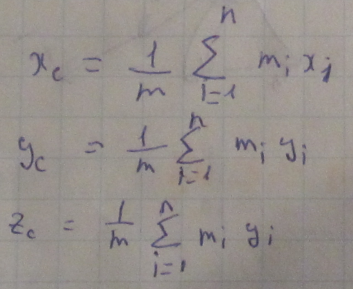 x_c = 1/m ∑_{i=1}^{n} m_i x_i
y_c = 1/m ∑_{i=1}^{n} m_i y_i
z_c = 1/m ∑_{i=1}^{n} m_i y_i